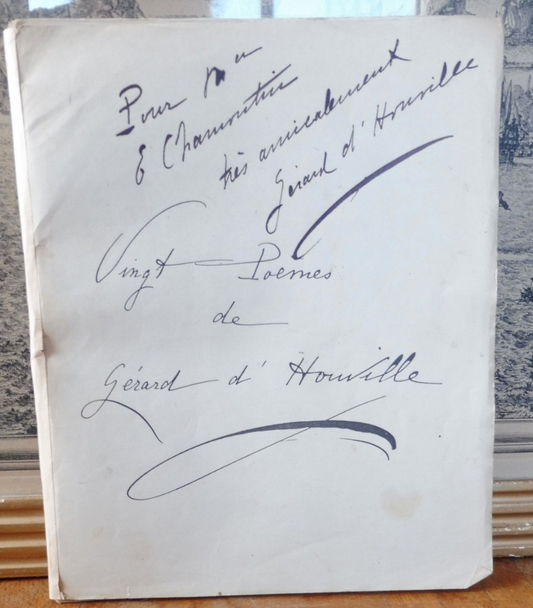 Pour
E Chamontin
très amicalement
Gérard d'Houville
Vingt Poèmes
de
Gérard d'Houville